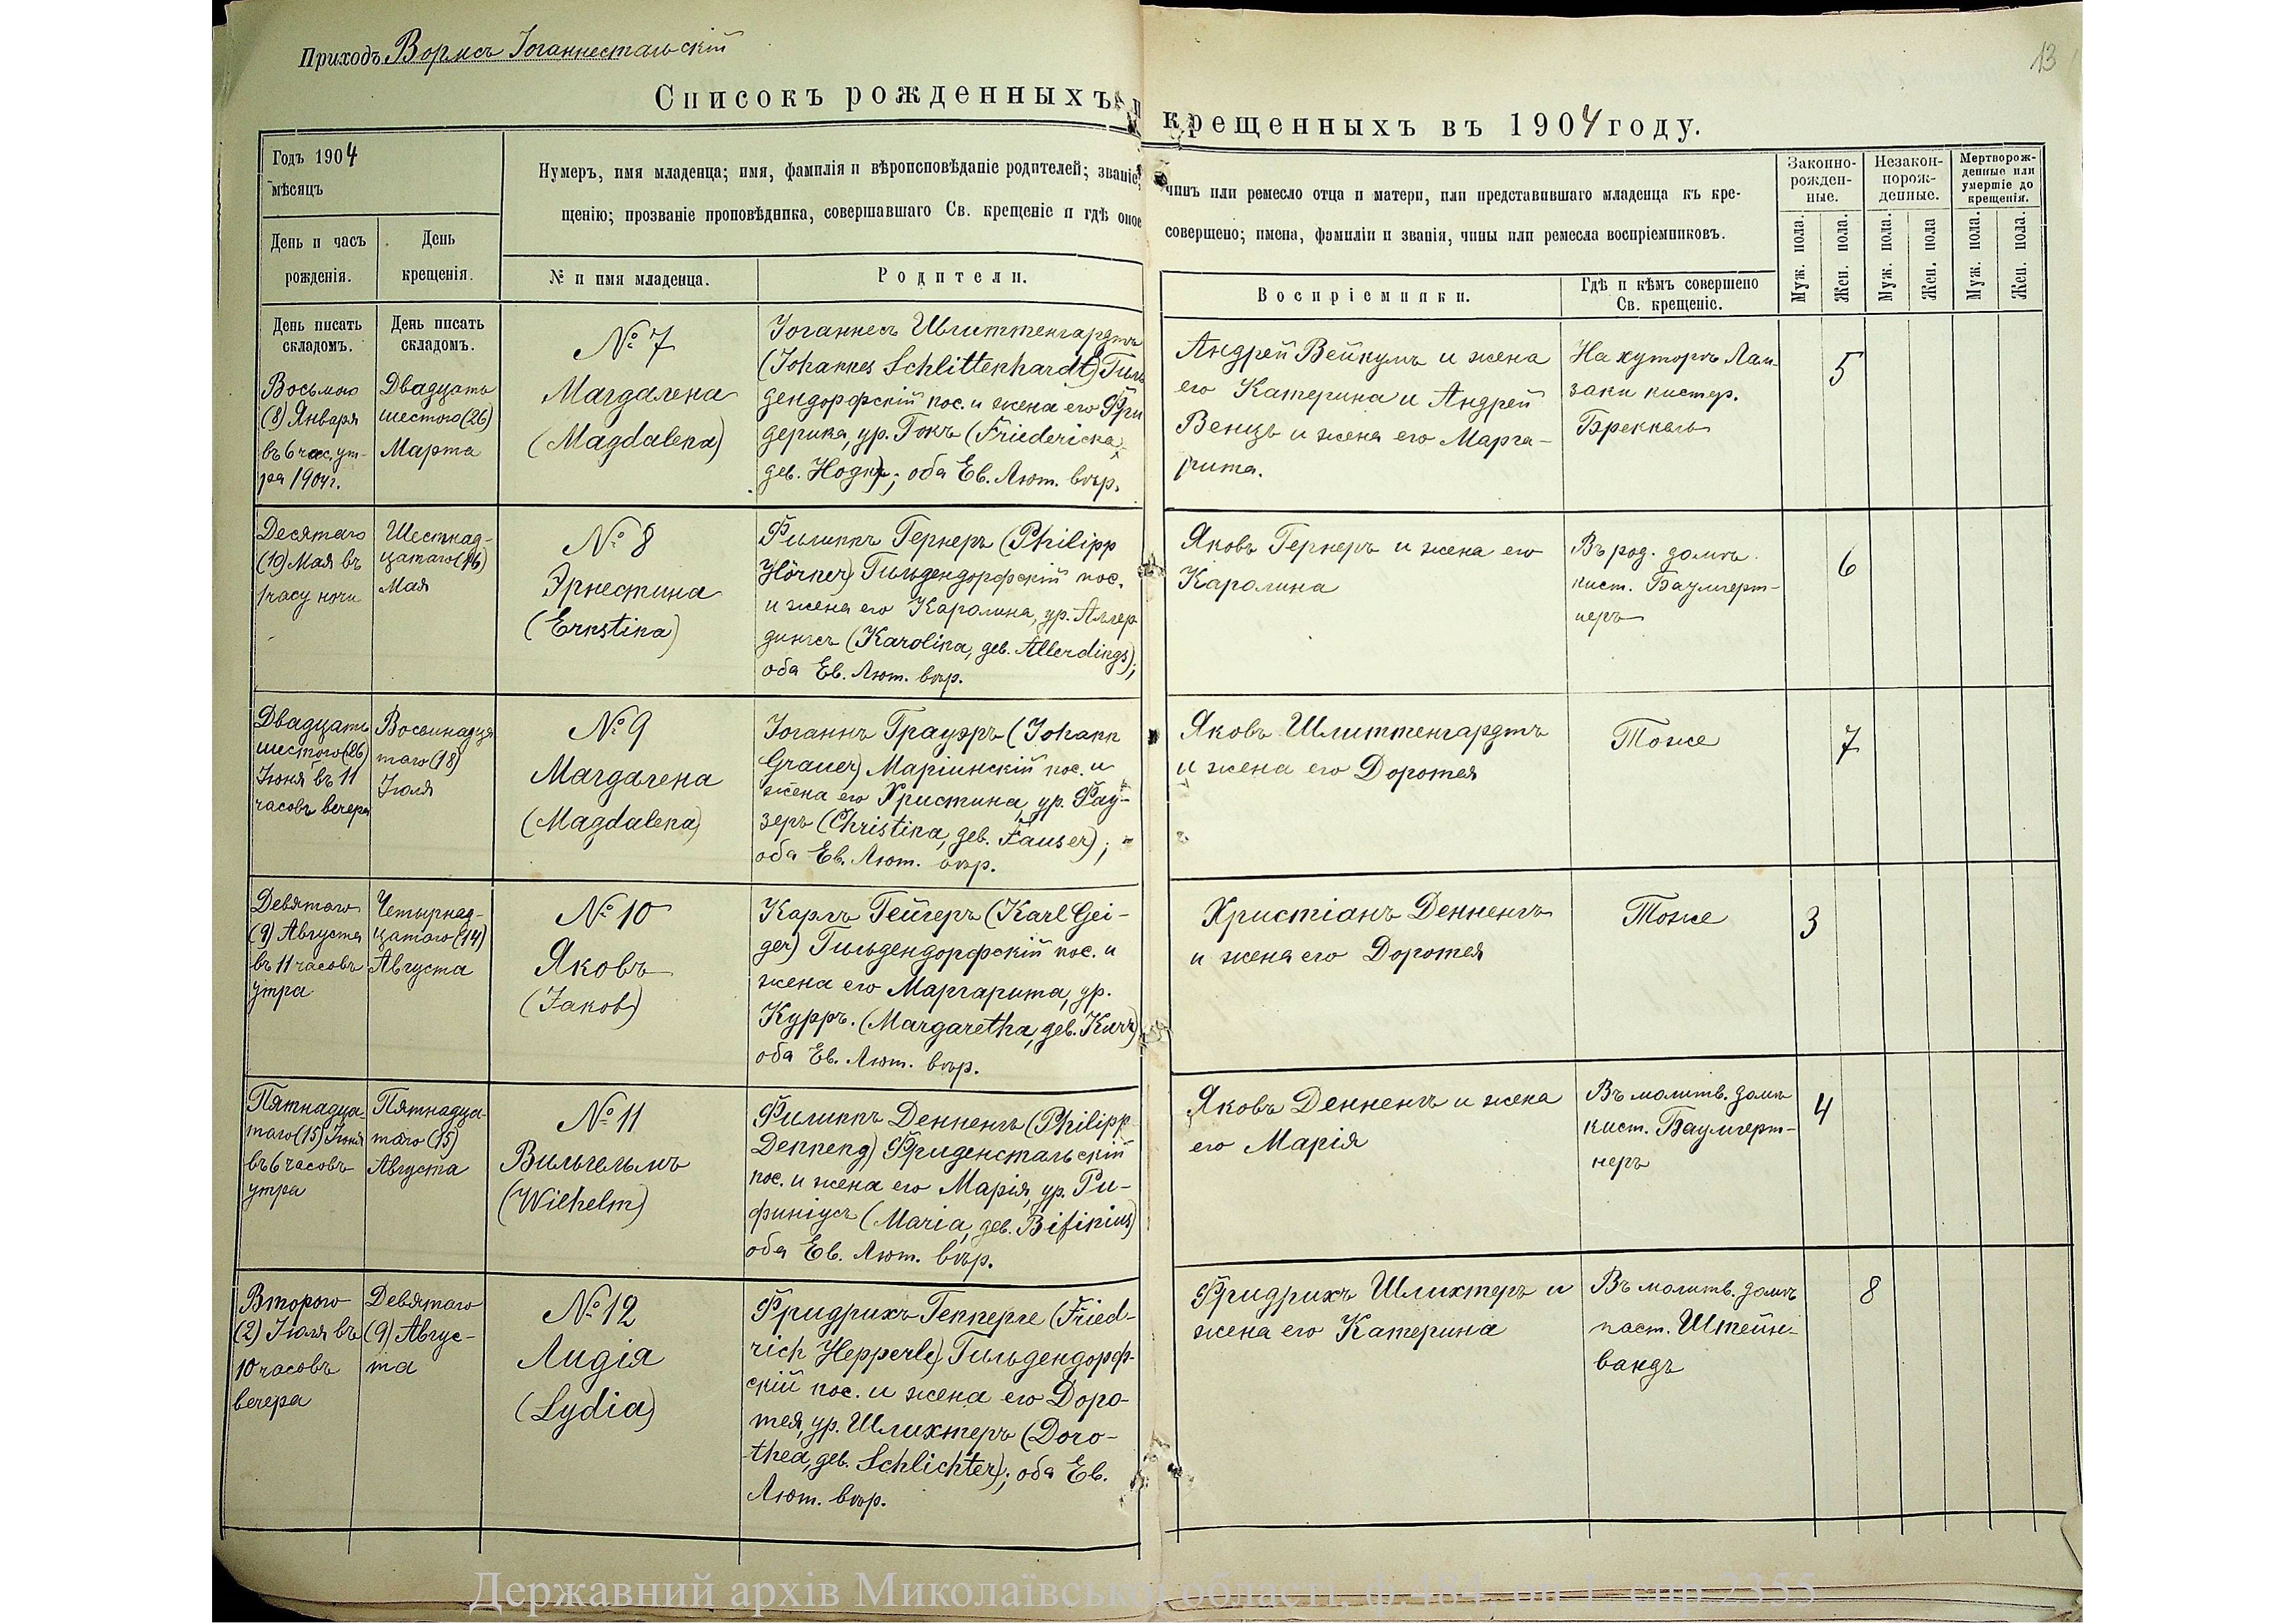 Приходъ Вормсъ Іоганнестальскій
13
Списокъ рожденныхъ и
крещенныхъ въ 1904 году.
Годъ 1904
мѣсяцъ
День и часъ
рожденія.
День
крещенія.
Нумеръ, имя младенца; имя, фамилія и вѣроисповѣданіе родителей; званіе,
щенію; прозваніе проповѣдника, совершавшаго Св. крещеніе и гдѣ оное
№ и имя младенца.
Родители.
чинъ или ремесло отца и матери, или представившаго младенца къ кре-
совершено; имена, фамиліи и званія, чины или ремесла воспріемниковъ.
Воспріемники.
Гдѣ и кѣмъ совершено
Св. крещеніе.
Законно-
рожден-
ные.
Незакон-
норож-
денные.
Мертворож-
денные или
умершіе до
крещенія.
Муж. пола.
Жен. пола.
Муж. пола.
Жен. пола
Муж. пола.
Жен. пола.
День писать
складомъ.
День писать
складомъ.
Восьмого
(8) Января
въ 6 час. ут-
ра 1904 г.
Двадцать
шестого (26)
Марта
№ 7
Магдалена
(Magdalena)
Іоганнесъ Шлиттенгардтъ
(Johannes Schlittenhardt) Гиль
дендорфскій пос. и жена его Фри
дерика, ур. Гокъ (Friedericka,
геб. Hock); оба Ев. Лют. вѣр.
Андрей Вейкумъ и жена
его Катерина и Андрей
Венцъ и жена его Марга-
рита.
На хуторѣ Лан-
заки кистер.
Бреккель
5
Десятаго
(10) Мая въ
1 часу ночи
Шестнад-
цатаго (16)
Мая
№ 8
Эрнестина
(Ernstina)
Филиппъ Гернеръ (Philipp
Hörner) Гильдендорфскій пос.
и жена его Каролина, ур. Аллер
дингсъ (Karolina, геб. Allerdings);
оба Ев. Лют. вѣр.
Яковъ Гернеръ и жена его
Каролина
Въ род. домѣ
кист. Баумгерт-
неръ
6
Двадцать
шестого (26)
Іюня въ 11
часовъ вечера
Восемнадца
таго (18)
Іюля
№ 9
Магдалена
(Magdalena)
Іоганнъ Грауэръ (Johann
Grauer) Маріинскій пос. и
жена его Христина, ур. Фау-
зеръ (Christina, геб. Fauser);
оба Ев. Лют. вѣр.
Яковъ Шлиттенгардтъ
и жена его Доротея
Тоже
7
Девятаго
(9) Августа
въ 11 часовъ
утра
Четырнад-
цатаго (14)
Августа
№ 10
Яковъ
(Jakob)
Карлъ Гейгеръ (Karl Gei-
ger) Гильдендорфскій пос. и
жена его Маргарита, ур.
Курръ. (Margaretha, геб. Kurr)
оба Ев. Лют. вѣр.
Христіанъ Денненгъ
и жена его Доротея
Тоже
3
Пятнадца
таго (15) Іюня
въ 6 часовъ
утра
Пятнадца-
таго (15)
Августа
№ 11
Вильгельмъ
(Wilhelm)
Филиппъ Денненгъ (Philipp
Denneng) Фриденстальскій
пос. и жена его Марія, ур. Ри-
финіусъ (Maria, геб. Rifinius)
оба Ев. Лют. вѣр.
Яковъ Денненгъ и жена
его Марія
Въ молитв. домѣ
кист. Баумгерт-
неръ
4
Второго
(2) Іюля въ
10 часовъ
вечера
Девятаго
(9) Авгус-
та
№ 12
Лидія
(Lydia)
Фридрихъ Гепперле (Fried-
rich Hepperle) Гильдендорф-
скій пос. и жена его Доро-
тея, ур. Шлихтеръ (Doro-
thea, геб. Schlichter); оба Ев.
Лют. вѣр.
Фридрихъ Шлихтеръ и
жена его Катерина
Въ молитв. домѣ
паст. Штейн-
вандъ
8
Державний архів Миколаївської області, ф.484, оп.1, спр.2355